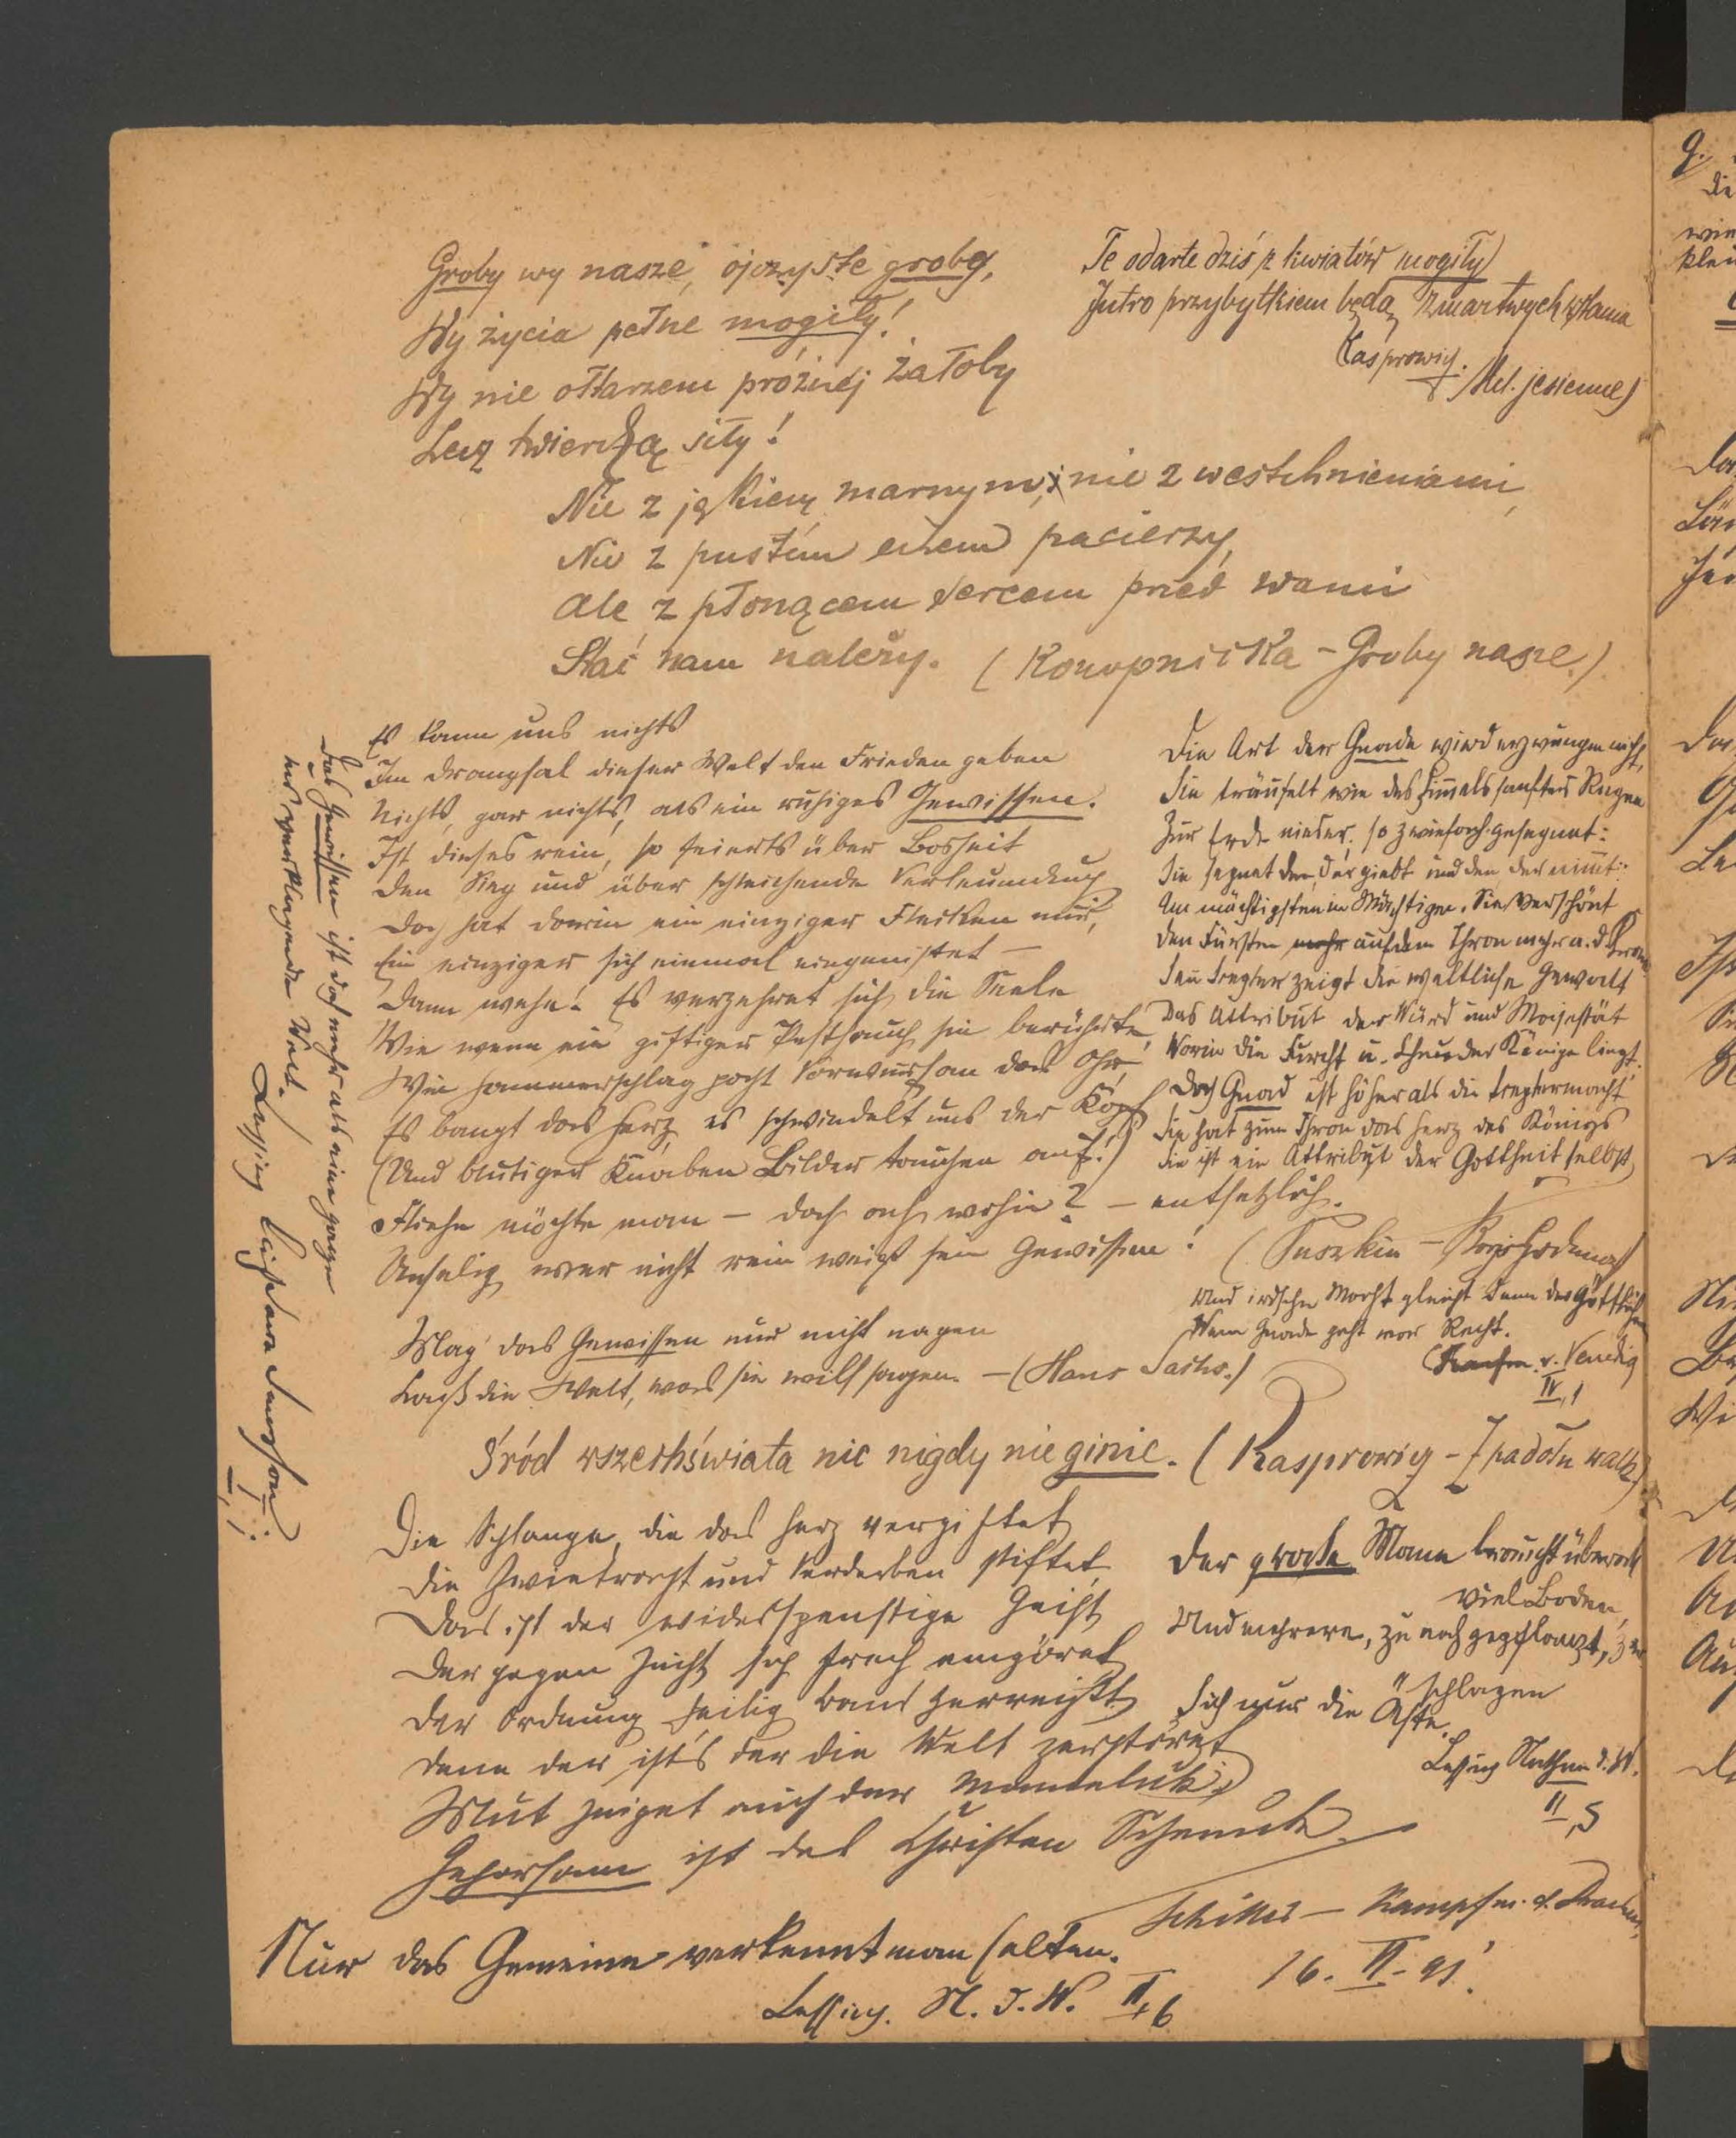 Groby wy nasze, ojczyste groby,
Wy życia pełne mogiły!
Wy nie ołtarzem próżnej żałoby
Lecz twierdzą siły!
Nie z jękiem marnym, nie z westchnieniami,
Nie z pustém echem pacierzy,
Ale z płonącem sercem przed wami
Stać nam należy. (Konopnicka - Groby nasze.)
Te odarte dziś z kwiatów mogiły
Jutro przybytkiem będą zmartwychwstania
Kasprowicz. Mel. jesienne)
Es kann uns nichts
Im Drangsal dieser Welt den Frieden geben
Nichts, gar nichts, als ein ruhiges Gewissen.
Ist dieses rein, so feierts über Bosheit
Den Sieg und über schleichende Verleumdung
Doch hat darin ein einziger Flecken nur,
Ein einziger sich einmal eingenistet —
Dann wehe! Es verzehret sich die Seele
Wie wenn ein giftiger Pesthauch sie berührte,
Wie Hammerschlag pocht Vorwurf an das Ohr,
Es bangt das Herz es schwindelt uns der Kopf
(Und blutiger Knaben Bilder tauchen auf!)
Fliehn möchte man — doch ach wohin? — entsetzlich.
Unselig wer nicht rein weiß sein Gewissen! (Puszkin — Borys Godunow)
Die Art der Gnade wird erzwungen nicht,
Sie träufelt wie des Himmels sanfter Regen
Zur Erde nieder; so zwiefach gesegnet:
Sie segnet den, der giebt und den der nimmt:
Am mächtigsten in Mächtigen. Sie verschönt
Den Fürsten mehr auf dem Thron mehr a. d. Krone
Das Attribut der Würd und Majestät
Worin die Furcht u. Scheu der Könige liegt.
Doch Gnad ist höher als die Szeptermacht
Sie hat zum Thron das Herz des Königs
Sie ist ein Attribut der Gottheit selbst
Und irdsche Macht gleicht dann der Göttlichen
Wenn Gnade geht vor Recht.
(Kaufm. v. Venedig
IV, 1
Mag das Gewissen nur nicht nagen
Laß die Welt, was sie will sagen. — (Hans Sachs.)
Śród wszechświata nic nigdy nie ginie. (Kasprowicz - Z padołu walk)
Die Schlange, die das Herz vergiftet
Die Zwietracht und Verderben stiftet
Das ist der widerspenstige Geist
Der gegen Zucht sich frech empöret
Der Ordnung heilig Band zerreißt
Denn der ist's der die Welt zerstöret
Mut zeiget auch der Mameluk,
Gehorsam ist des Christen Schmuck.
Schiller — Kampf m. d. Drachen
16. II. 91.
Der große Mann braucht überall
viel Boden,
Und mehrere, zu nah gepflanzt, zer-
schlagen
Sich nur die Äste.
Lessing Nathan d. W.
II, 5
Nur das Gemeine verkennt man selten.
Lessing. N. d. W. II, 6
Das Gewissen ist doch mehr als eine ganze
uns verklagende Welt.
Lessing